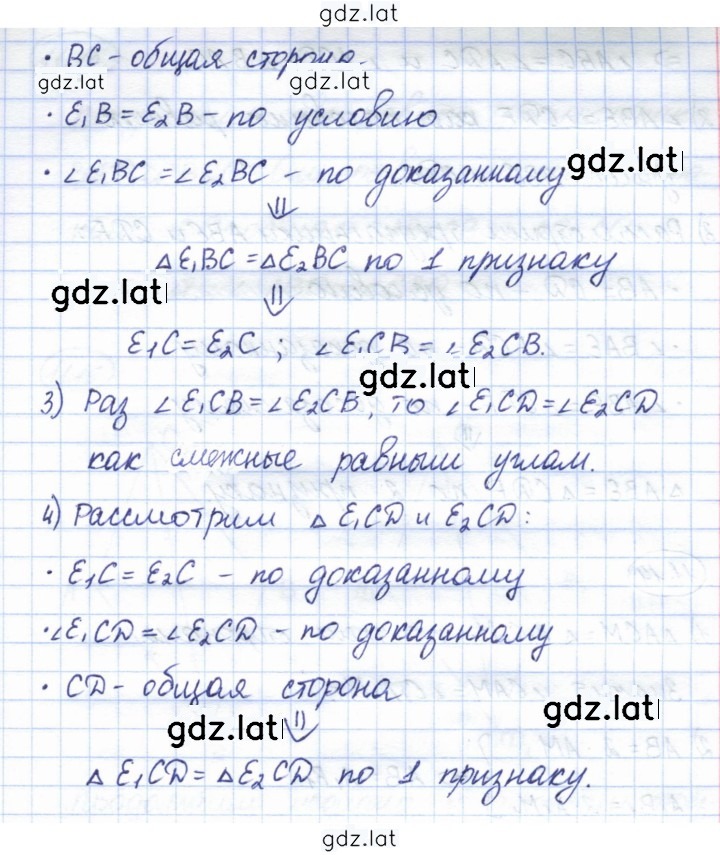 gdz.lat
· BC - общая сторона.
gdz.lat gdz.lat
· E₁B = E₂B - по условию
· ∠E₁BC = ∠E₂BC - по доказанному gdz.lat
⇓
△E₁BC = △E₂BC по 1 признаку
gdz.lat ⇓
E₁C = E₂C ; ∠E₁CB = ∠E₂CB.
gdz.lat
3) Раз ∠E₁CB = ∠E₂CB, то ∠E₁CD = ∠E₂CD
как смежные равным углам.
4) Рассмотрим △ E₁CD и E₂CD:
· E₁C = E₂C - по доказанному
· ∠E₁CD = ∠E₂CD - по доказанному
· CD - общая сторона
gdz.lat ⇓ gdz.lat
△ E₁CD = △ E₂CD по 1 признаку.
gdz.lat